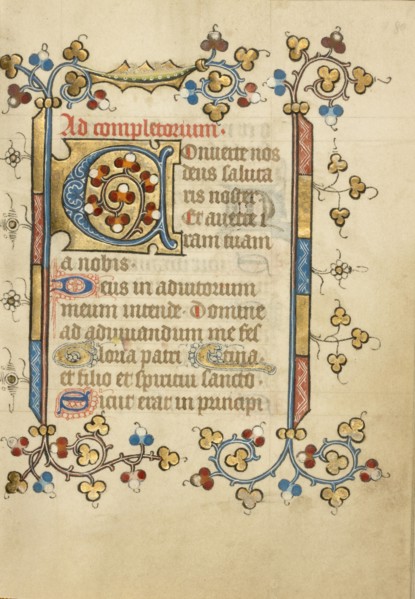 Ad completorium.
Conuerte nos
deus saluta
ris noster.
Et auerte i
ram tuam
a nobis.
Deus in adiutorium
meum intende. Domine
ad adiuuandum me fes
Gloria patri tina.
et filio et spiritui sancto.
Sicut erat in principi